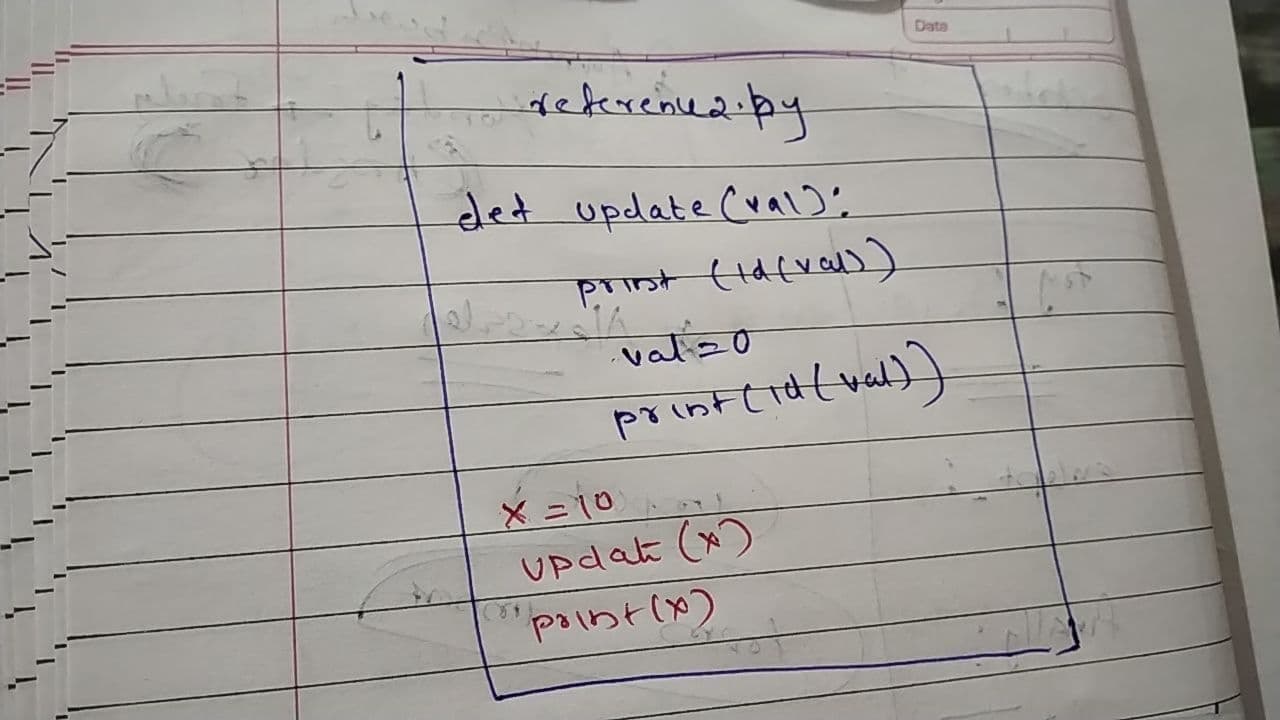 Date
reference2.py
def update(val):
print(id(val))
val=0
print(id(val))
x=10
update(x)
print(x)